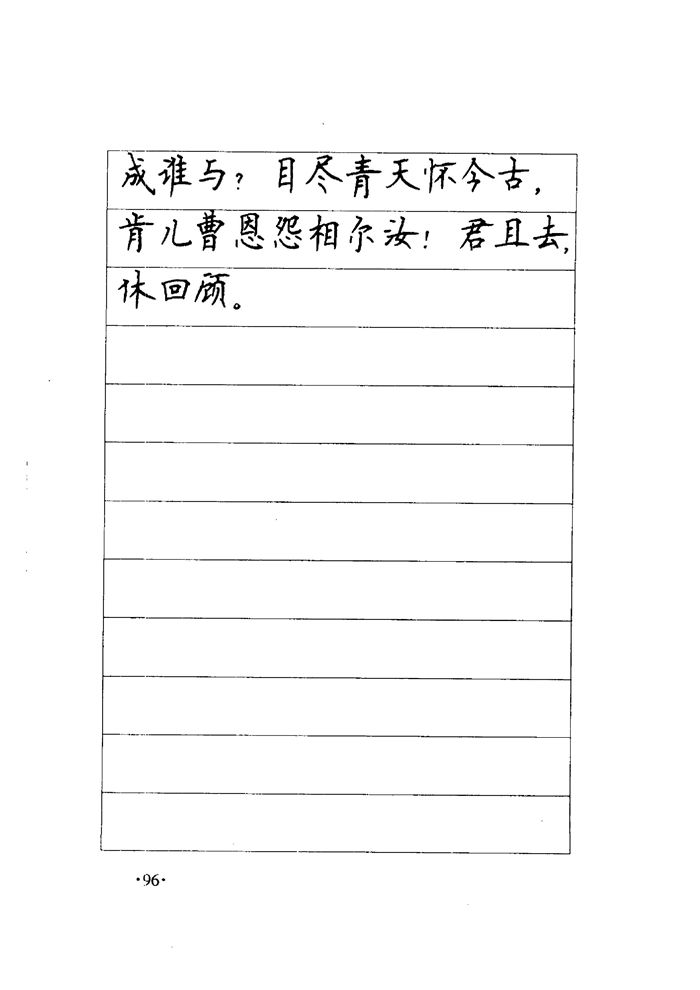 成谁与？目尽青天怀今古，
肯儿曹恩怨相尔汝！君且去，
休回顾。
·96·